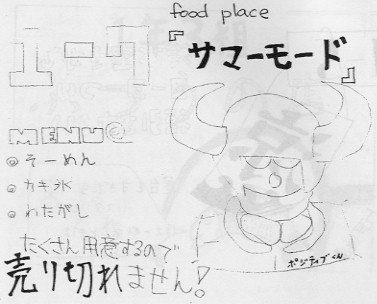 1-4
food place
『サマーモード』
MENU
◎そーめん
◎カキ氷
◎わたがし
たくさん用意するので
売り切れません!
ポジティブくん